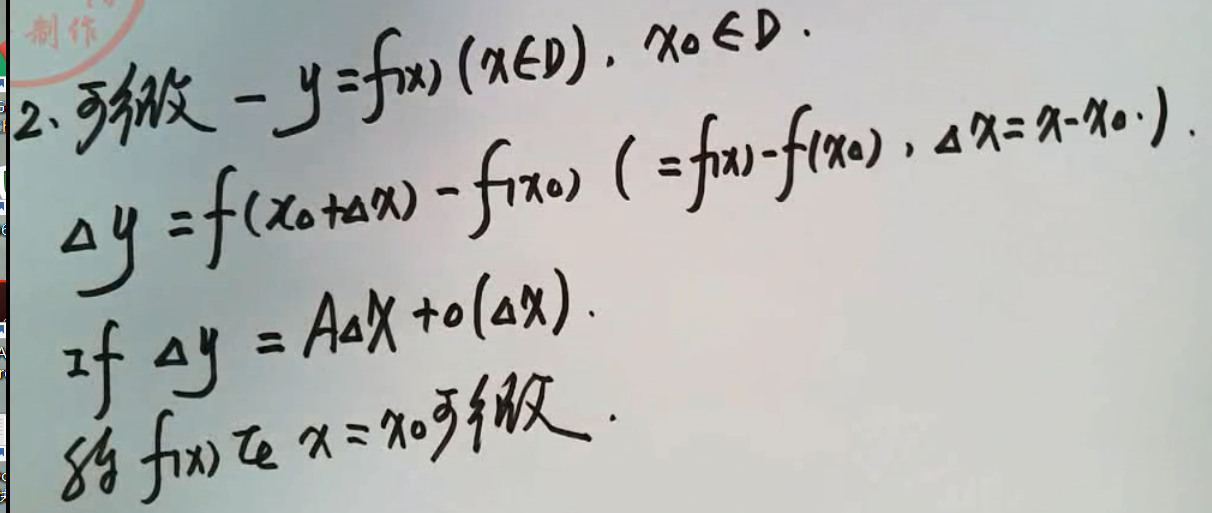 制作
2、可微 - y=f(x)(x∈D), x₀∈D.
Δy=f(x₀+Δx)-f(x₀)(=f(x)-f(x₀), Δx=x-x₀.).
If Δy=AΔx+o(Δx).
称f(x)在x=x₀可微.